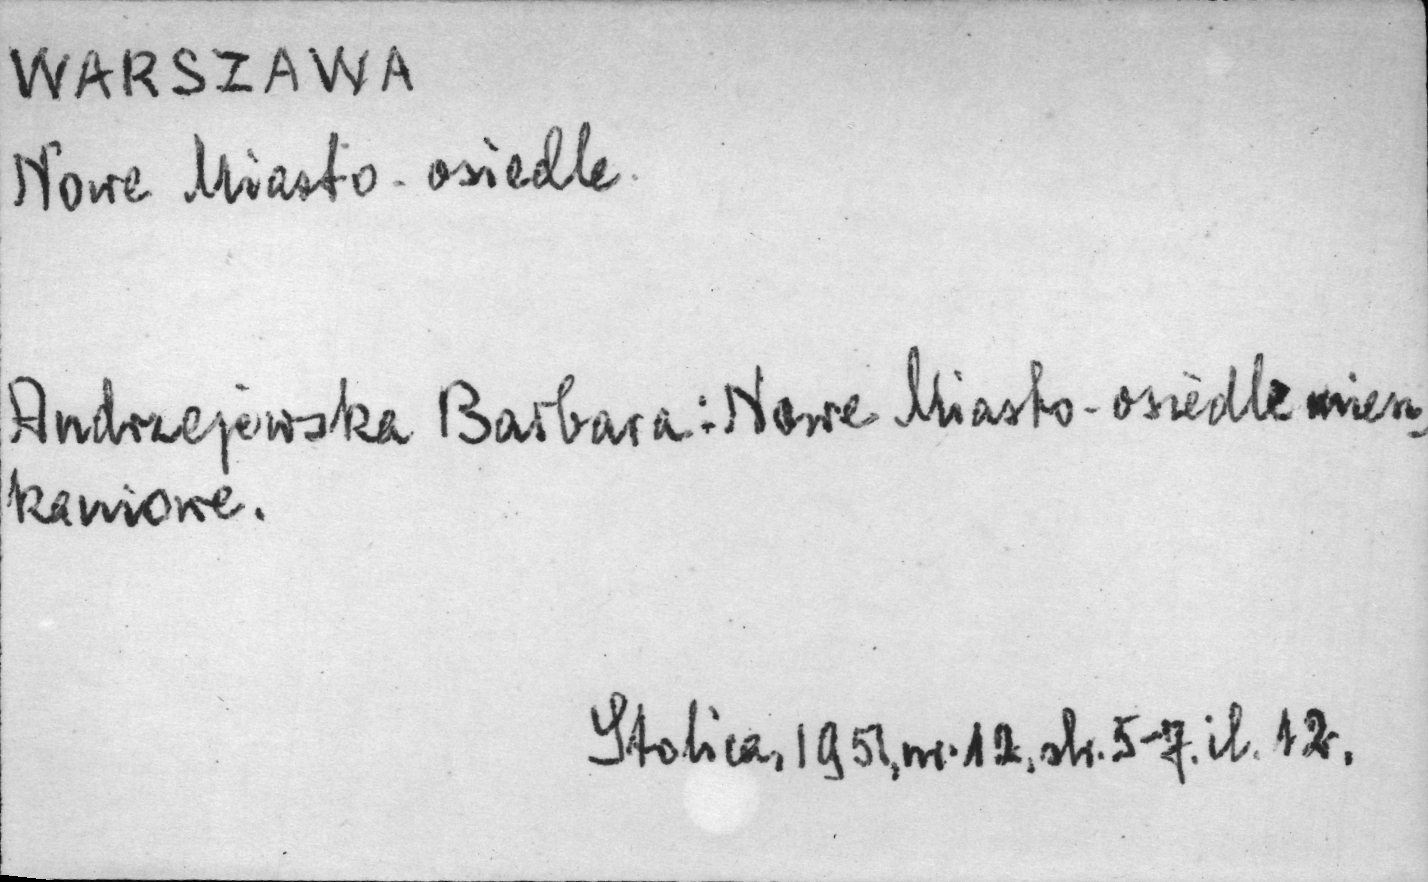 WARSZAWA
Nowe Miasto - osiedle.
Andrzejewska Barbara: Nowe Miasto - osiedle miesz
kaniowe.
Stolica, 1951, nr. 12, str. 5-7. il. 12.